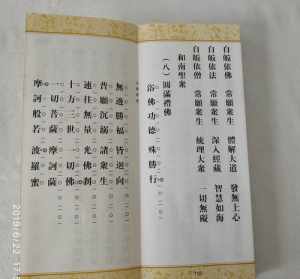 自皈依佛　當願衆生　體解大道　發無上心
自皈依法　當願衆生　深入經藏　智慧如海
自皈依僧　當願衆生　統理大衆　一切無礙
和南聖衆
（八）圓滿禮佛
浴佛功德殊勝行
無邊勝福皆迴向
普願沉溺諸衆生
速往無量光佛刹
十方三世一切佛
一切菩薩摩訶薩
摩訶般若波羅蜜
2019/6/22